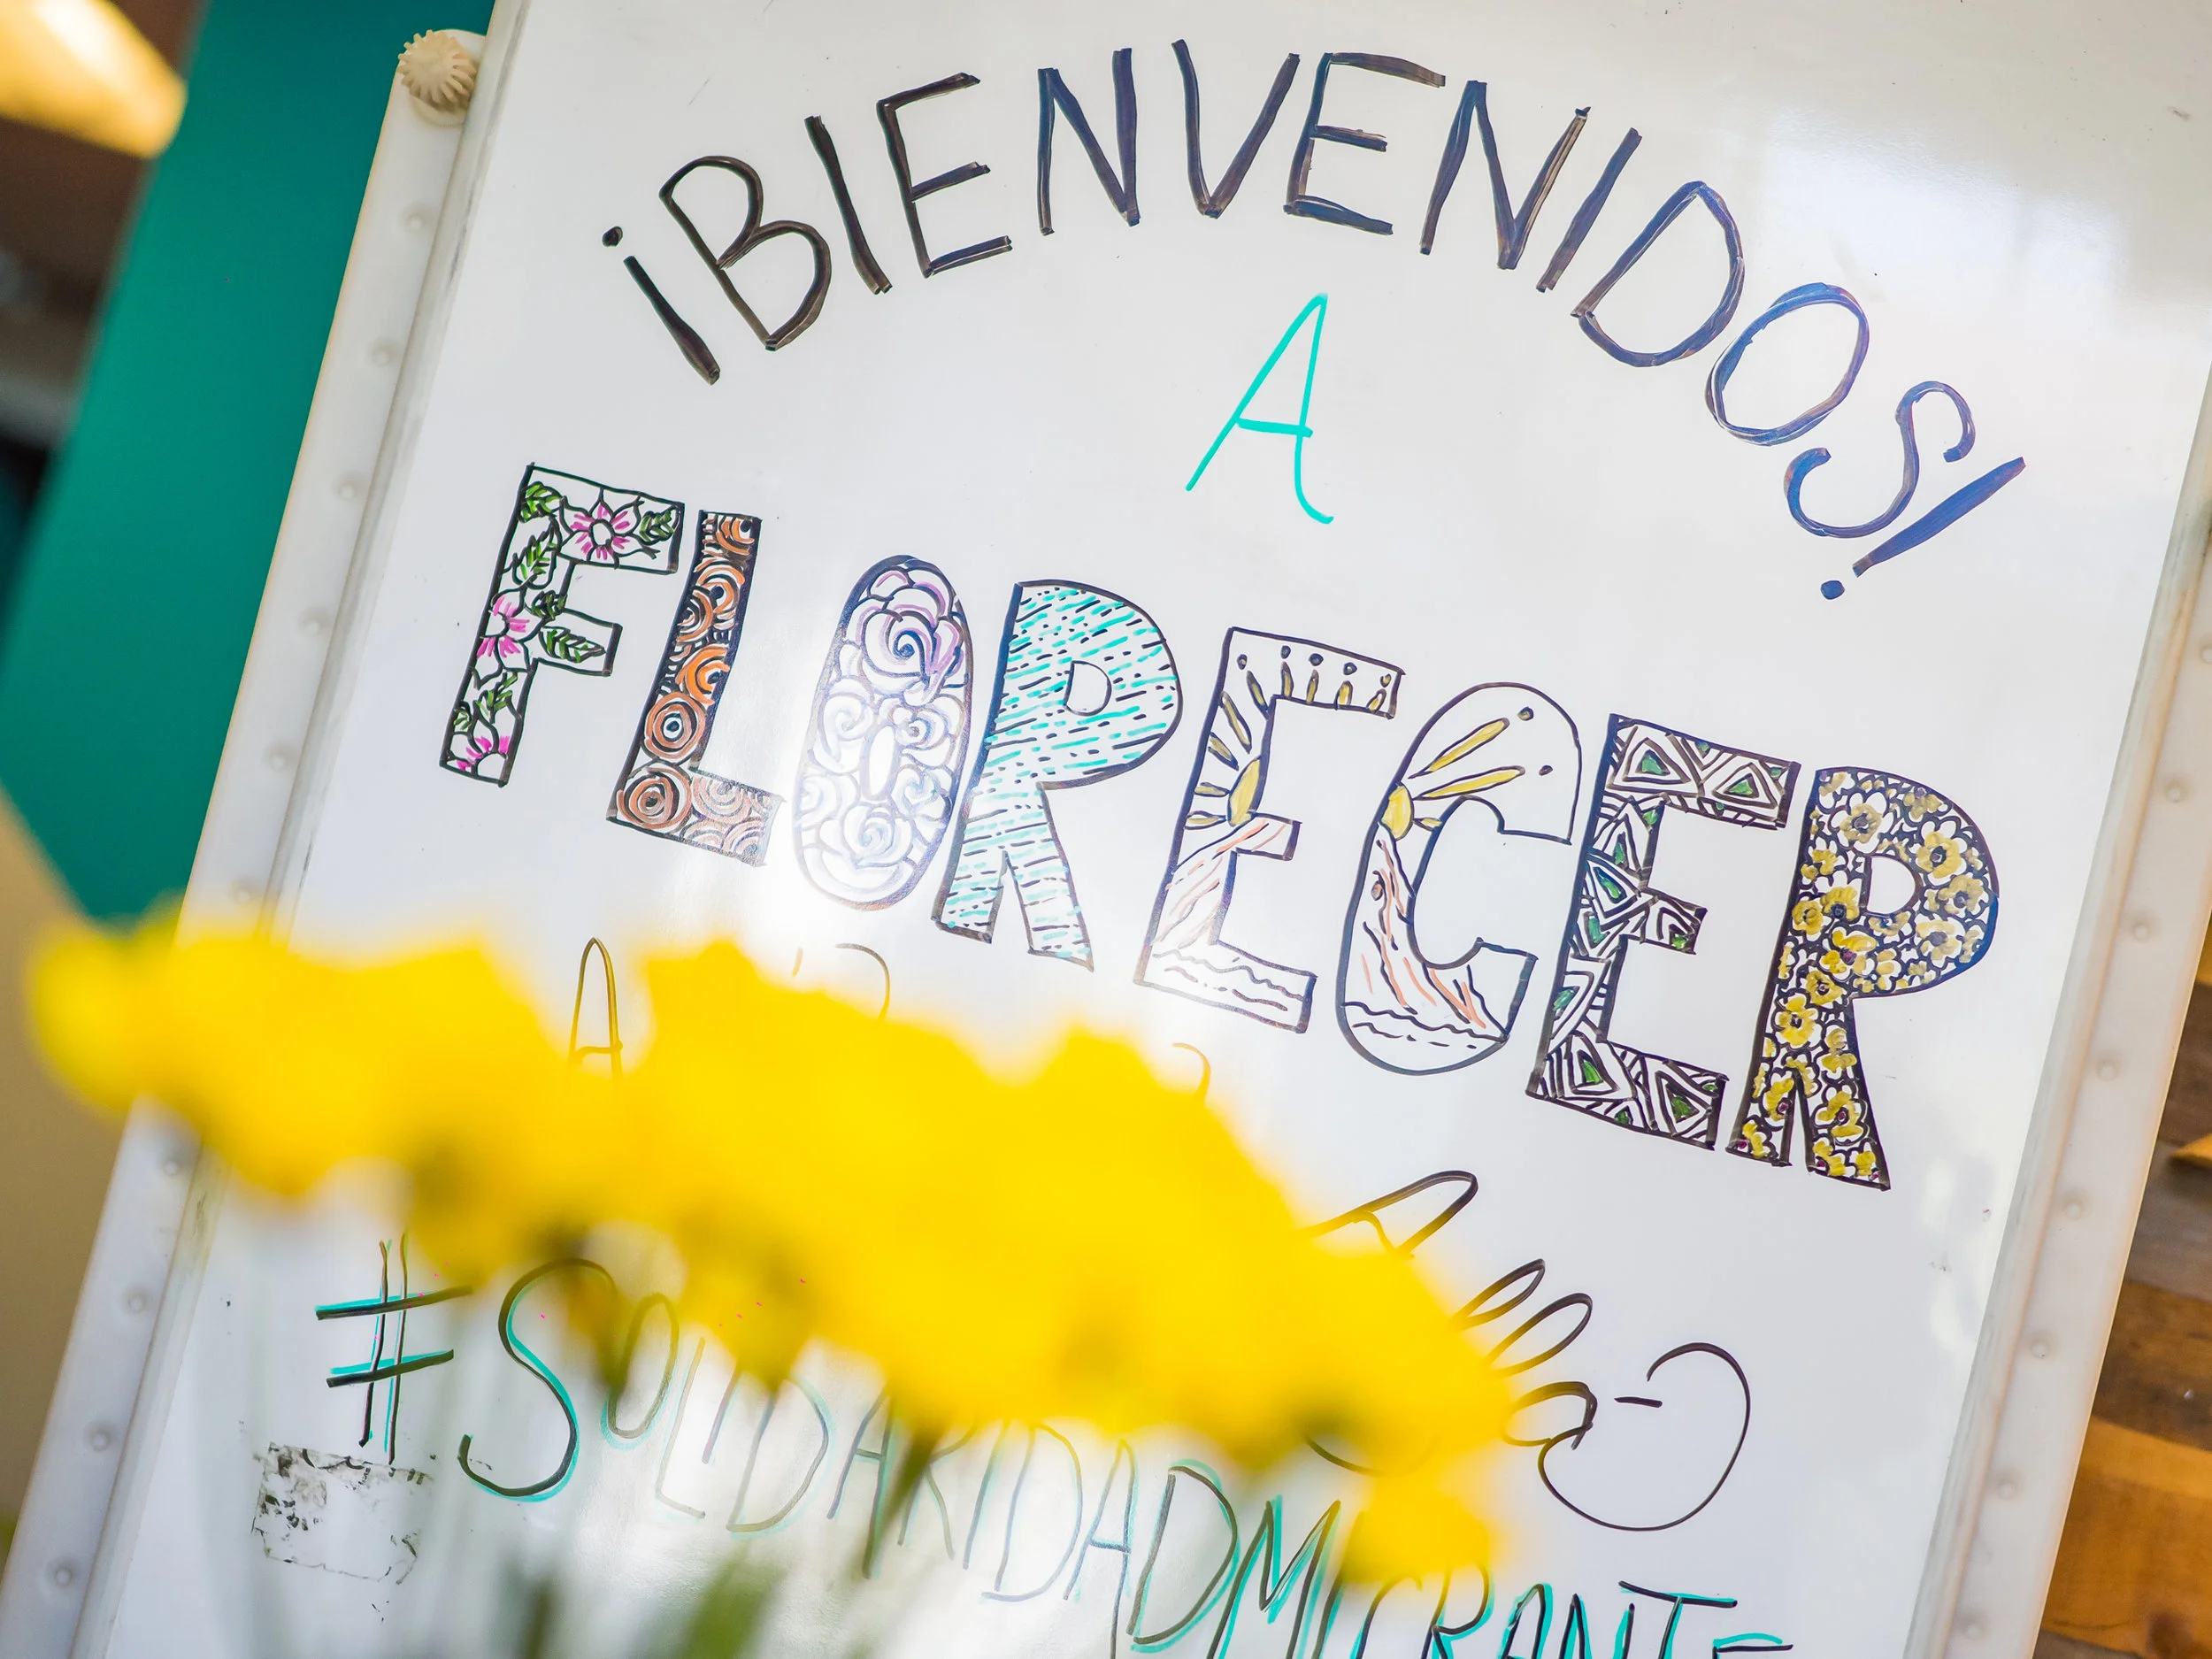 ¡BIENVENIDOS!
A
FLORECER
#SOLIDARIDADMIGRANTE